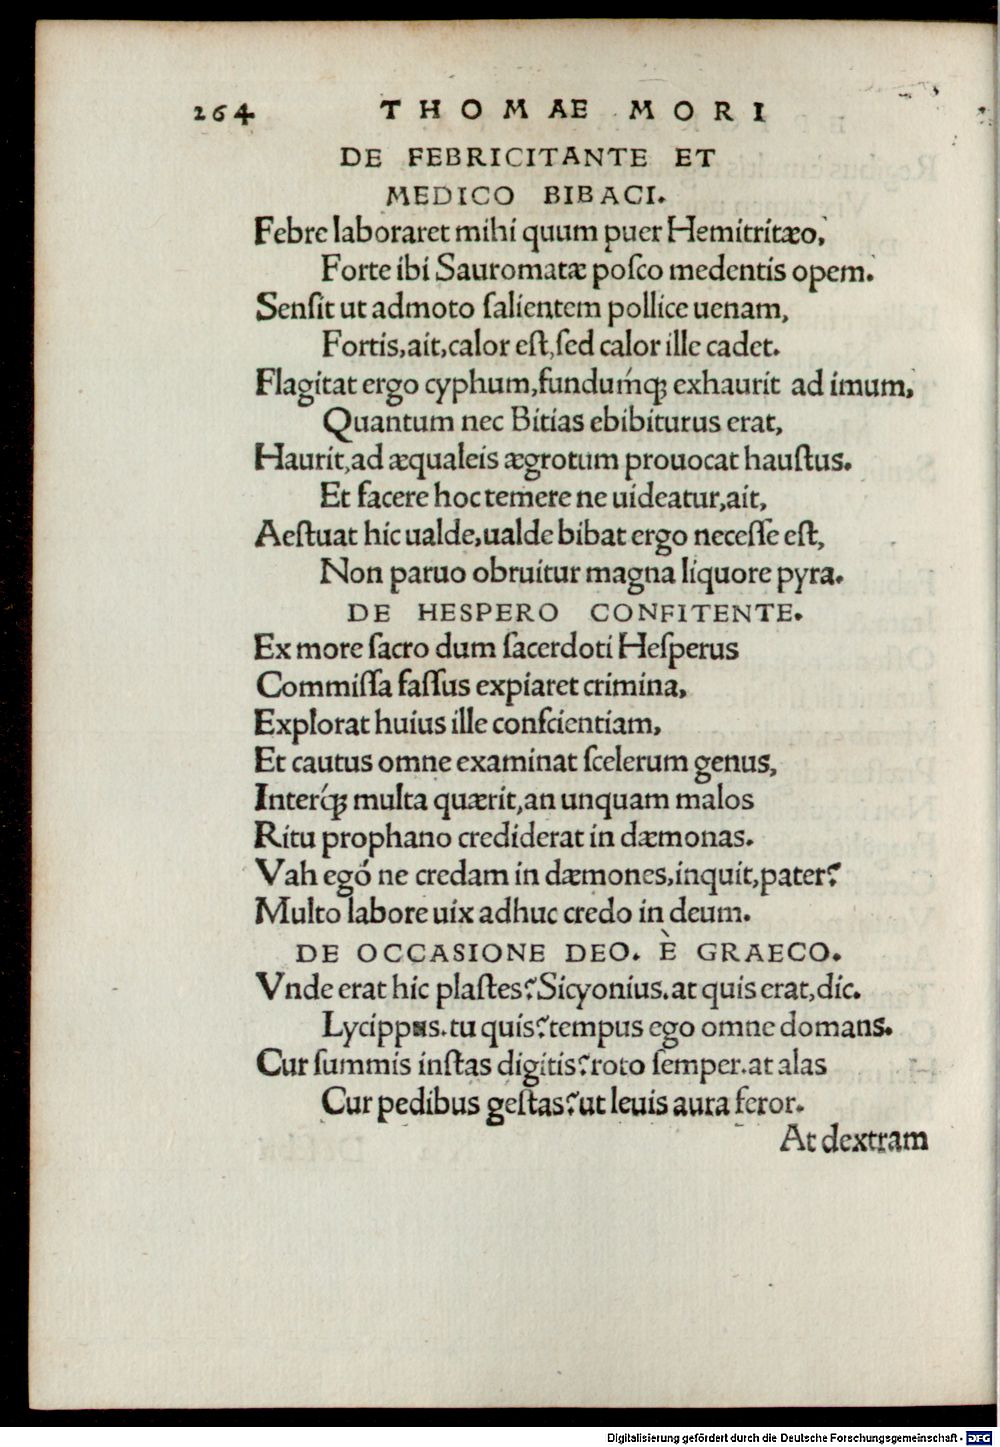 264 THOMAE MORI
DE FEBRICITANTE ET
MEDICO BIBACI.
Febre laboraret mihi quum puer Hemitritæo,
Forte ibi Sauromatæ poſco medentis opem.
Senſit ut admoto ſalientem pollice uenam,
Fortis,ait,calor eſt,ſed calor ille cadet.
Flagitat ergo cyphum,funduḿqꝫ exhaurit ad imum,
Quantum nec Bitias ebibiturus erat,
Haurit,ad æqualeis ægrotum prouocat hauſtus.
Et facere hoc temere ne uideatur,ait,
Aeſtuat hic ualde,ualde bibat ergo neceſſe eſt,
Non paruo obruitur magna liquore pyra.
DE HESPERO CONFITENTE.
Ex more ſacro dum ſacerdoti Heſperus
Commiſſa faſſus expiaret crimina,
Explorat huius ille conſcientiam,
Et cautus omne examinat ſcelerum genus,
Inteŕqꝫ multa quærit,an unquam malos
Ritu prophano crediderat in dæmonas.
Vah egó ne credam in dæmones,inquit,pater?
Multo labore uix adhuc credo in deum.
DE OCCASIONE DEO. È GRAECO.
Vnde erat hic plaſtes? Sicyonius. at quis erat,dic.
Lycippus. tu quis? tempus ego omne domans.
Cur ſummis inſtas digitis? roto ſemper. at alas
Cur pedibus geſtas? ut leuis aura feror.
At dextram
Digitalisierung gefördert durch die Deutsche Forschungsgemeinschaft - DFG